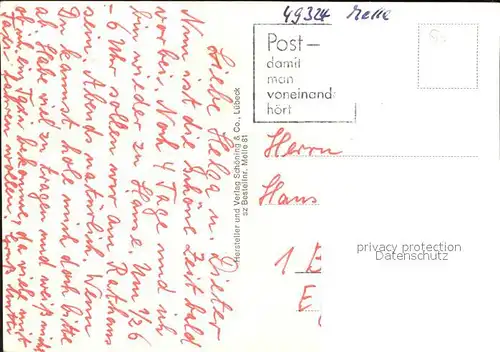 49324 Melle
Post –
damit
man
voneinand
hört
Herrn
Hans
1
privacy protection
Datenschutz
Hersteller und Verlag Schöning & Co., Lübeck
sz Bestellnr. Melle 81
Liebe Helga u. Dieter
Nun ist die schöne Zeit bald
vorbei. Noch 4 Tage und ich
bin wieder zu Hause. Um 1/2 6
- 6 Uhr sollen wir am Rathaus
sein Abends natürlich. Wenn
Du kannst, hole mich doch bitte
ab. Habe viel zu tragen und weiß nicht
ob ich ein Taxi bekomme, da viele mit
Taxi fahren wollen.